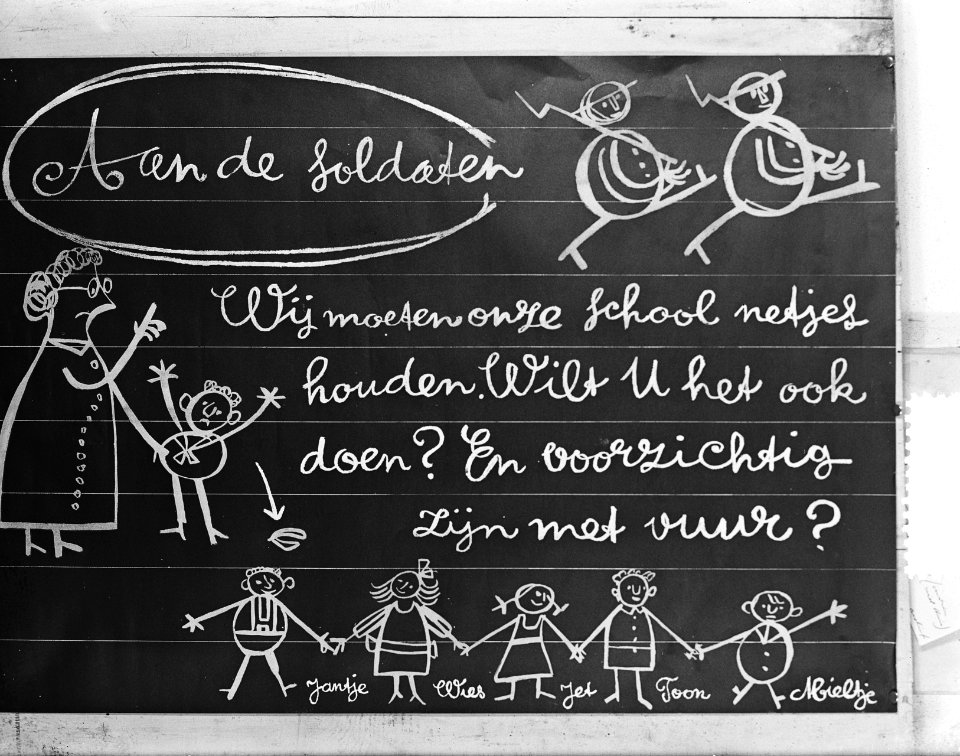 Aan de soldaten
Wij moeten onze school netjes
houden. Wilt U het ook
doen? En voorzichtig
zijn met vuur?
Jantje Wies Jet Toon Mieltje